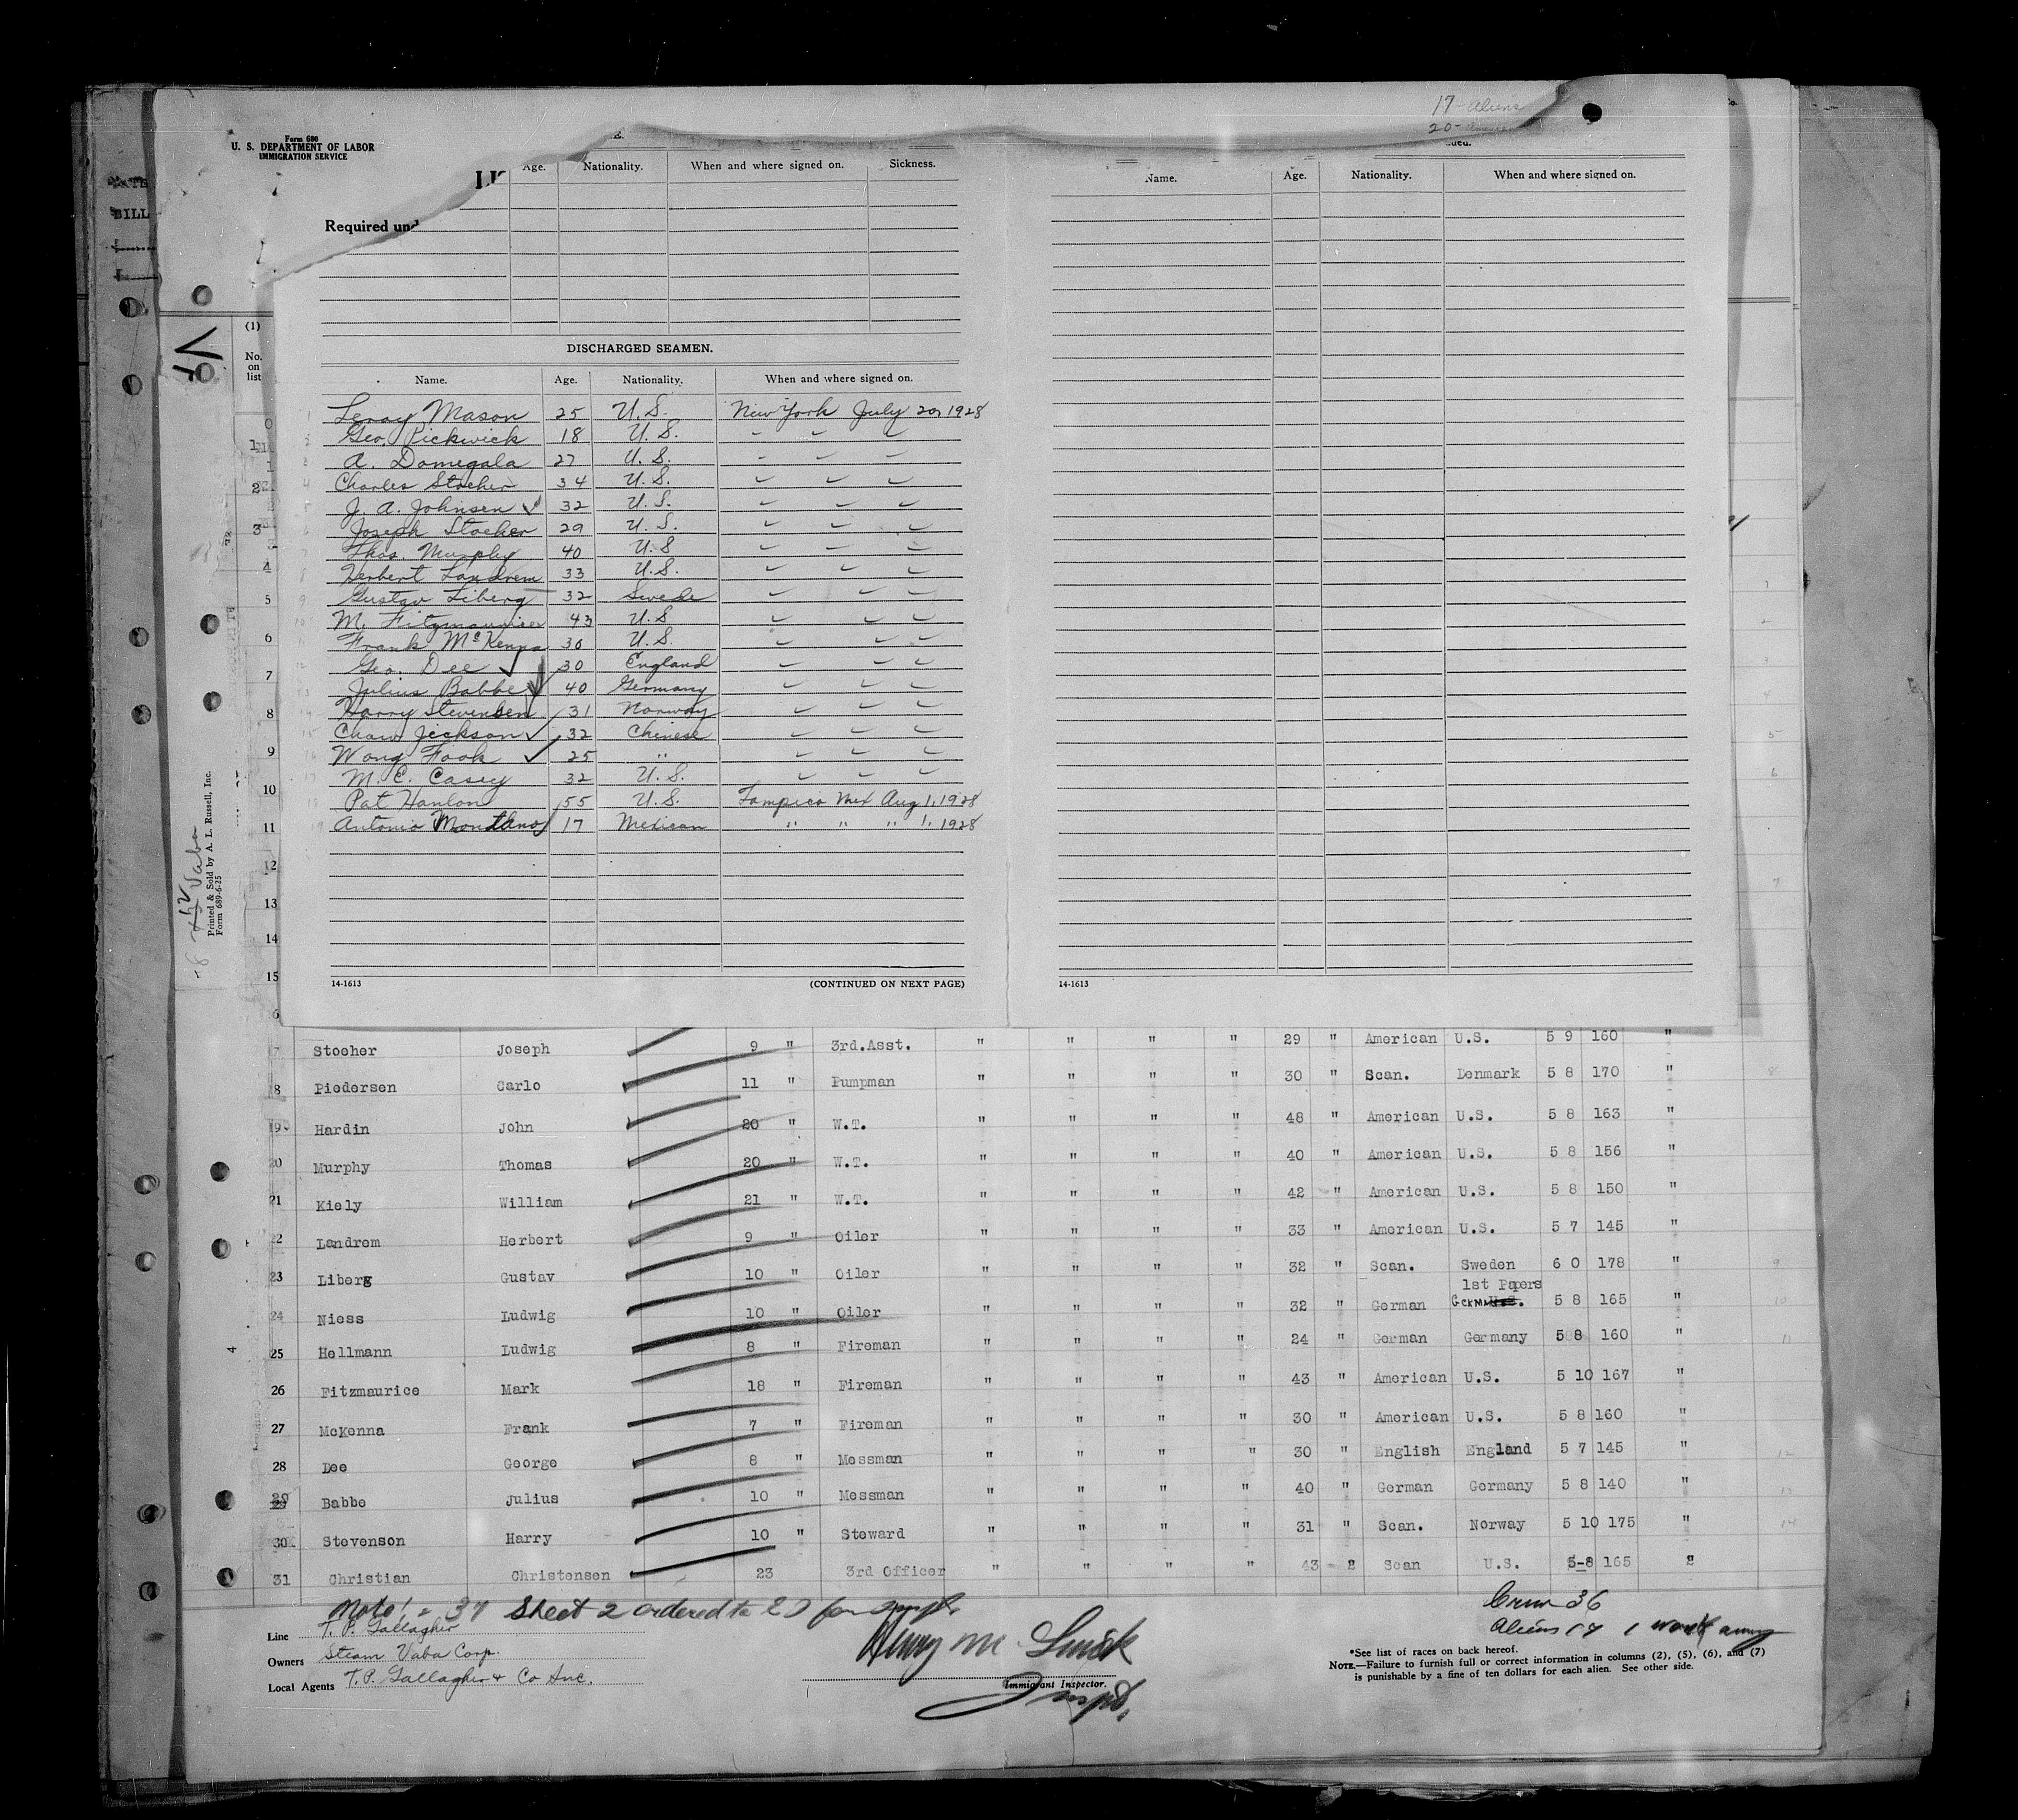 17 - Aliens
20 -
Form 680
U. S. DEPARTMENT OF LABOR
IMMIGRATION SERVICE
Required und
Age. Nationality. When and where signed on. Sickness.
Name. Age. Nationality. When and where signed on.
DISCHARGED SEAMEN.
Name. Age. Nationality. When and where signed on.
Leroy Mason 25 U.S. New York July 20, 1928
Geo. Pickwick 18 U.S.
A. Domegala 27 U.S.
Charles Stocher 34 U.S.
J. A. Johnsen 32 U.S.
Joseph Stocher 29 U.S.
Thos. Murphy 40 U.S
Herbert Landrem 33 U.S.
Gustav Liberg 32 Swede
M. Fitzmaurice 43 U.S
Frank McKenna 30 U.S.
Geo. Dee 30 England
Julius Babbe 40 Germany
Harry Stevensen 31 Norway
Chaw Jickson 32 Chinese
Wong Fook 25 "
M. C. Casey 32 U.S.
Pat Hanlon 55 U.S. Tampico Mex Aug 1, 1928
Antonio Montano 17 Mexican " " " 1, 1928
14-1613 (CONTINUED ON NEXT PAGE)
14-1613
(1)
No. on list
1
2
3
4
5
6
7
8
9
10
11
12
13
14
15
6
Printed & Sold by A. L. Russell, Inc.
Form 689-6-25
7 Stocher Joseph 9 " 3rd.Asst. " " " " 29 " American U.S. 5 9 160 "
8 Piedersen Carlo 11 " Pumpman " " " " 30 " Scan. Denmark 5 8 170 "
19 Hardin John 20 " W.T. " " " " 48 " American U.S. 5 8 163 "
20 Murphy Thomas 20 " W.T. " " " " 40 " American U.S. 5 8 156 "
21 Kiely William 21 " W.T. " " " " 42 " American U.S. 5 8 150 "
22 Landrem Herbert 9 " Oiler " " " " 33 " American U.S. 5 7 145 "
23 Liberg Gustav 10 " Oiler " " " " 32 " Scan. Sweden 6 0 178 "
1st Papers
24 Niess Ludwig 10 " Oiler " " " " 32 " German German U.S. 5 8 165 "
25 Hellmann Ludwig 8 " Fireman " " " " 24 " German Germany 5 8 160 "
26 Fitzmaurice Mark 18 " Fireman " " " " 43 " American U.S. 5 10 167 "
27 McKenna Frank 7 " Fireman " " " " 30 " American U.S. 5 8 160 "
28 Dee George 8 " Messman " " " " 30 " English England 5 7 145 "
29 Babbe Julius 10 " Messman " " " " 40 " German Germany 5 8 140 "
30 Stevenson Harry 10 " Steward " " " " 31 " Scan. Norway 5 10 175 "
31 Christian Christensen 23 3rd Officer " " " " 43 2 Scan U.S. 5-8 165 2
Note! - 37 Sheet 2 ordered to
Crew 36
Aliens 17 1 work away
Line T. P. Gallagher
Owners Steam Vaba Corp.
Local Agents T. P. Gallagher & Co Inc.
Immigrant Inspector.
*See list of races on back hereof.
NOTE.—Failure to furnish full or correct information in columns (2), (5), (6), and (7)
is punishable by a fine of ten dollars for each alien. See other side.